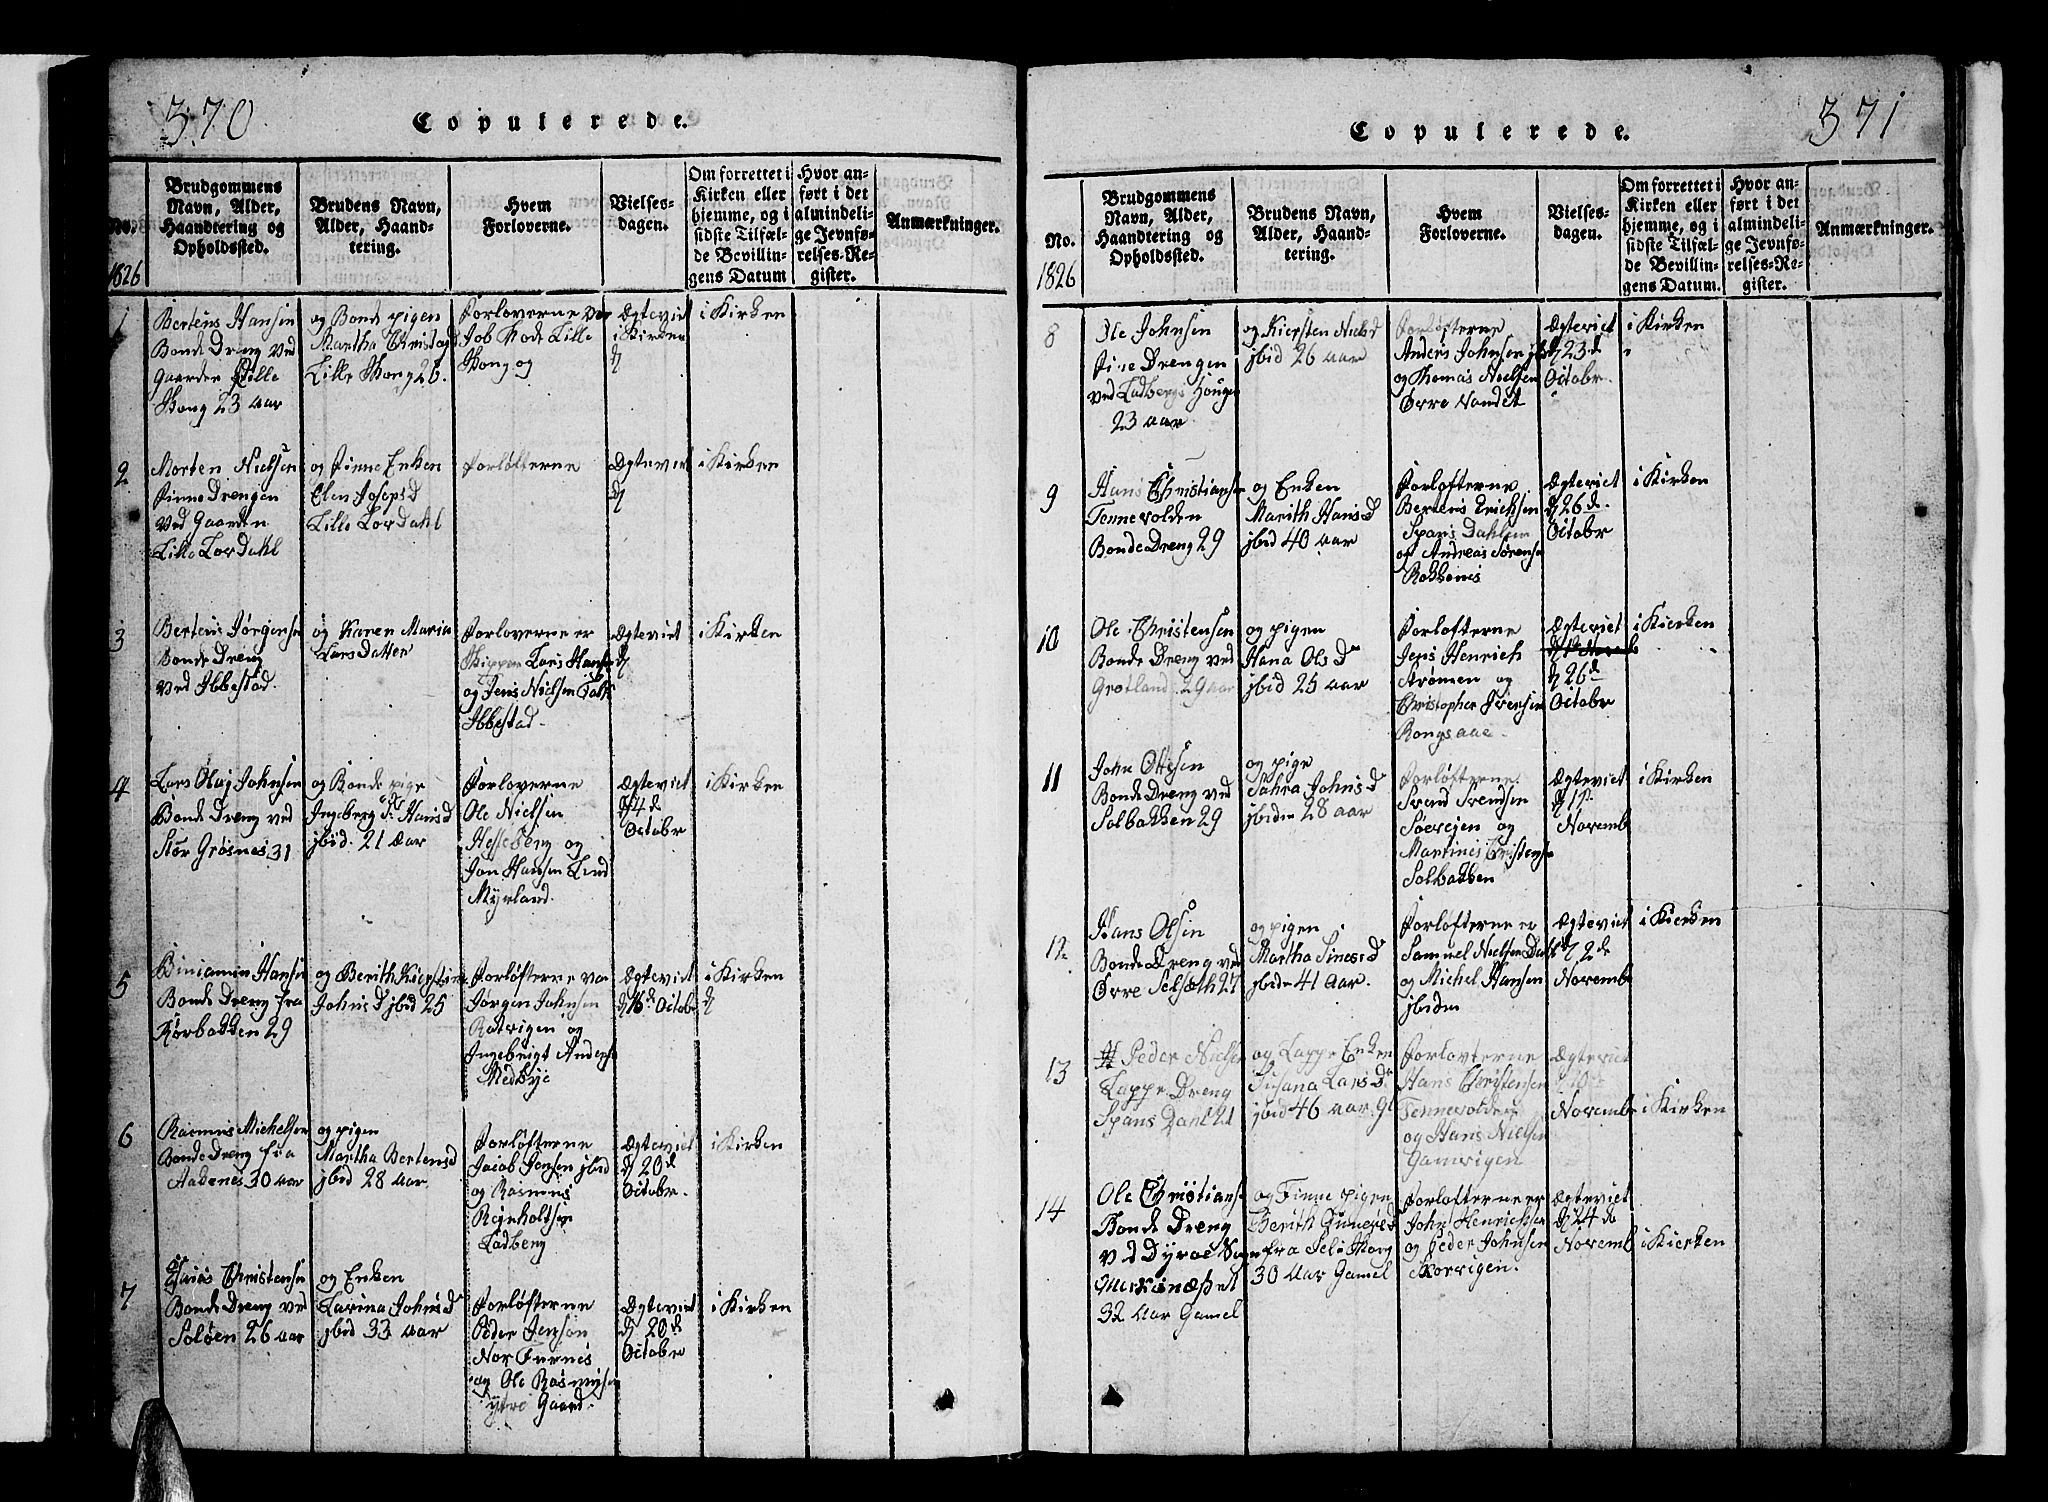 370
Copulerede.
No.
1826
Brudgommens
Navn, Alder,
Haandtering og
Opholdssted.
Brudens Navn,
Alder, Haand-
tering.
Hvem
Forloverne.
Vielses-
dagen.
Om forrettet i
Kirken eller
hjemme, og i
sidste Tilfæl-
de Bevillin-
gens Datum
Hvor an-
ført i det
almindeli-
ge Jevnfø-
relses-Re-
gister.
Anmærkninger.
1
Bertens Hansen
Bonde Dreng ved
Gaarden Lille
Thong 23 aar
og Bonde pigen
Martha
Lille Thong 26
Forloverne
Job Lille
Thong og
Ægteviet
i Kirken
i Kirken
2
Morten Nielsen
Finne Drengen
ved Gaarden
Lille Lordahl
og Finne Enken
Elen Josepsd
Lille Lordahl
Forløfterne
Ægteviet
i Kirken
3
Bertens Jørgensen
Bonde Dreng
ved Ibbestad.
og Karen Maria
Larsdatter
Forloverne er
Lars Hansen
og Jens Nielsen
Ibbestad.
Ægteviet
i Kirken
4
Lars Olaj Johnsen
Bonde Dreng ved
Stor Grøsnes 31
og Bonde pige
Ingeberg Hansd
jbid. 21 aar
Forloverne
Ole Nielsen
Hesseberg og
Jon Hansen Lind
Myrland.
Ægteviet
4d
Octobr
i Kirken
5
Biniamin Hansen
Bonde Dreng fra
Rørbakken 29
og Berith Kierstine
Johnsd jbid 25
Forløfterne var
Jørgen Johnsen
Rotvigen og
Ingebrigt
Medbye
Ægteviet
16d Octobr
i Kirken
6
Rasmus Michelsen
Bonde Dreng fra
Aadenes 30 aar
og pigen
Martha Bertensd
jbid 28 aar.
Forløfterne
Jacob Jensen jbid
og Rasmus
Reinholtsen
Ladberg
Ægteviet
20d
October.
i Kirken
7
Christensen
Bonde Dreng ved
Soløen 26 aar
og Enken
Larina Johnsd
jbid 33 aar
Forløfterne
Peder Jensen
Nor Furnes
og Ole Rasmusen
ytre Gaard.
Ægteviet
20d
October
i Kirken
371
Copulerede.
No.
1826
Brudgommens
Navn, Alder,
Haandtering og
Opholdssted.
Brudens Navn,
Alder, Haand-
tering.
Hvem
Forloverne.
Vielses-
dagen.
Om forrettet i
Kirken eller
hjemme, og i
sidste Tilfæl-
de Bevillin-
gens Datum.
Hvor an-
ført i det
almindeli-
ge Jevnfø-
relses-Re-
gister.
Anmærkninger.
8
Ole Johnsen
Finne Drengen
ved Ladbergs
23 aar
og Kiersten Nielsd
jbid 26 aar
Forløfterne
Anders Johnsen
og Thomas Nielsen
Øvre Vandet
Ægteviet
23d
Octobr.
i Kirken
9
Hans Christiansen
Tennevolden
Bonde Dreng 29
og Enken
Marith Hansd
jbid 40 aar
Forlofterne
Bertens Erichsen
Spans Dahlen
og Andreas Sørensen
Rokkenes
Ægteviet
26d.
Octobr
i Kirken
10
Ole Christensen
Bonde Dreng ved
Grotland 29 aar
og pigen
Hana Olsd
jbid 25 aar
Forlofterne
Jens Henrich
Strømen og
Christopher Ivensen
Rongsaae
Ægteviet
26d
Octobr
i Kierken
11
John Ottesen
Bonde Dreng ved
Solbakken 29
og pige
Sahra Johnsd
jbiden 28 aar
Forløfterne
Svend Svendsen
Søevejen og
Martines Christens
Solbakken
Ægteviet
1
Novemb
i Kirken
12
Hans Olsen
Bonde Dreng ved
Øvre Selsæth 27
og pigen
Martha Simesd
jbiden 41 aar.
Forløfterne er
Samuel Nielsen Dahl
og Michel Hansen
jbiden
Ægteviet
2d
Novemb
i Kierken
13
Peder Nielsen
Lappe Dreng
Spans Dahl 21
og Lappe Enken
Susana Larsd
jbid 46 aar Gl
Forlovterne
Hans Christensen
Tennevolden
og Hans Nielsen
Gamvigen
Ægteviet
10
Novembr
i Kirken
14
Ole Christians
Bonde Dreng
ved Dyrøe
32 aar Gamel
og Finne pigen
Berith
fra
30 aar Gamel
Forlofterne er
John Henrichsen
og Peder Johnsen
Skorvigen.
Ægteviet
24d
Novemb
i Kierken